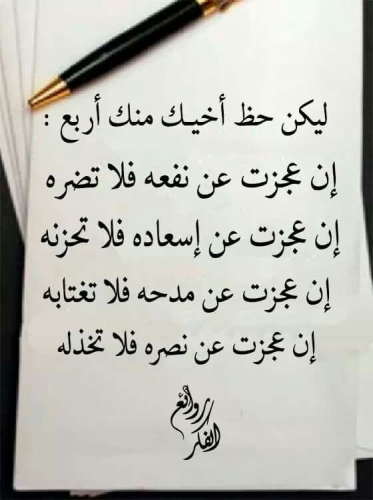 ليكن حظ أخيك منك أربع :
إن عجزت عن نفعه فلا تضره
إن عجزت عن إسعاده فلا تحزنه
إن عجزت عن مدحه فلا تغتابه
إن عجزت عن نصره فلا تخذله
روائع
الفكر